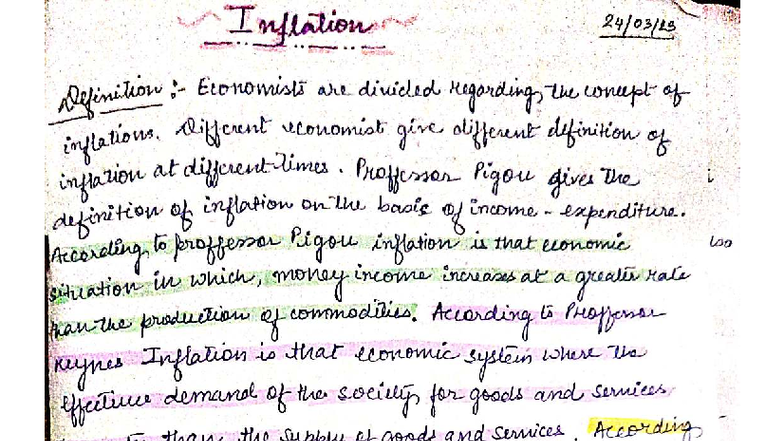 Inflation
24/03/23
Definition :- Economists are divided regarding the concept of
inflations. Different economist give different definition of
inflation at different times. Proffessor Pigou gives the
definition of inflation on the basis of income - expenditure.
According to proffessor Pigou inflation is that economic
situation in which, money income increases at a greater rate
than the production of commodities. According to Proffessor
Keynes Inflation is that economic system where the
effective demand of the society for goods and services
than the supply of goods and services. According